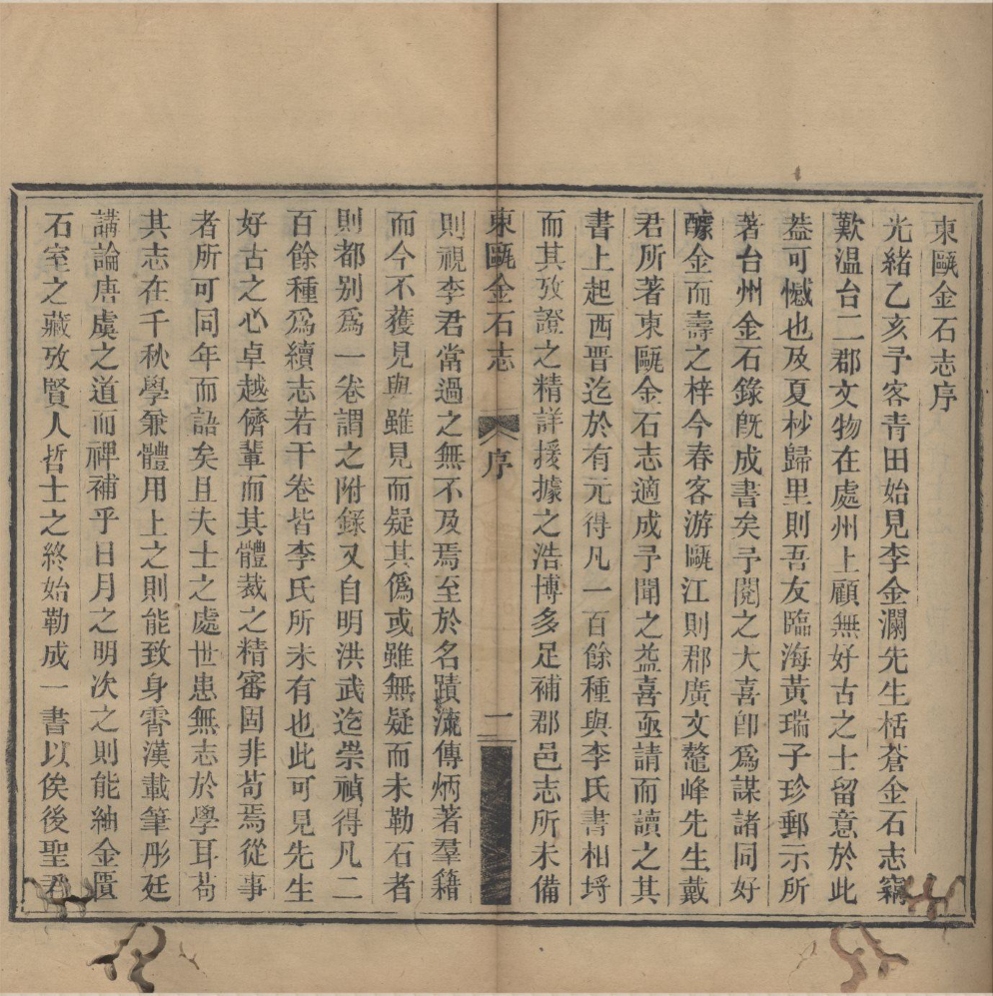 東甌金石志序
光緒乙亥予客青田始見李金瀾先生栝蒼金石志竊
歎温台二郡文物在處州上顧無好古之士留意於此
葢可憾也及夏杪歸里則吾友臨海黃瑞子珍郵示所
著台州金石錄旣成書矣予閱之大喜卽爲謀諸同好
醵金而壽之梓今春客游甌江則郡廣文鼇峰先生戴
君所著東甌金石志適成予聞之益喜亟請而讀之其
書上起西晋迄於有元得凡一百餘種與李氏書相埒
而其攷證之精詳援據之浩博多足補郡邑志所未備
東甌金石志
序
一
則視李君當過之無不及焉至於名蹟流傳炳著羣籍
而今不獲見與雖見而疑其僞或雖無疑而未勒石者
則都别爲一卷謂之附錄又自明洪武迄崇禎得凡二
百餘種爲續志若干卷皆李氏所未有也此可見先生
好古之心卓越儕輩而其體裁之精審固非苟焉從事
者所可同年而語矣且夫士之處世患無志於學耳苟
其志在千秋學兼體用上之則能致身霄漢載筆彤廷
講論唐虞之道而禆補乎日月之明次之則能紬金匱
石室之藏攷賢人哲士之終始勒成一書以俟後聖君